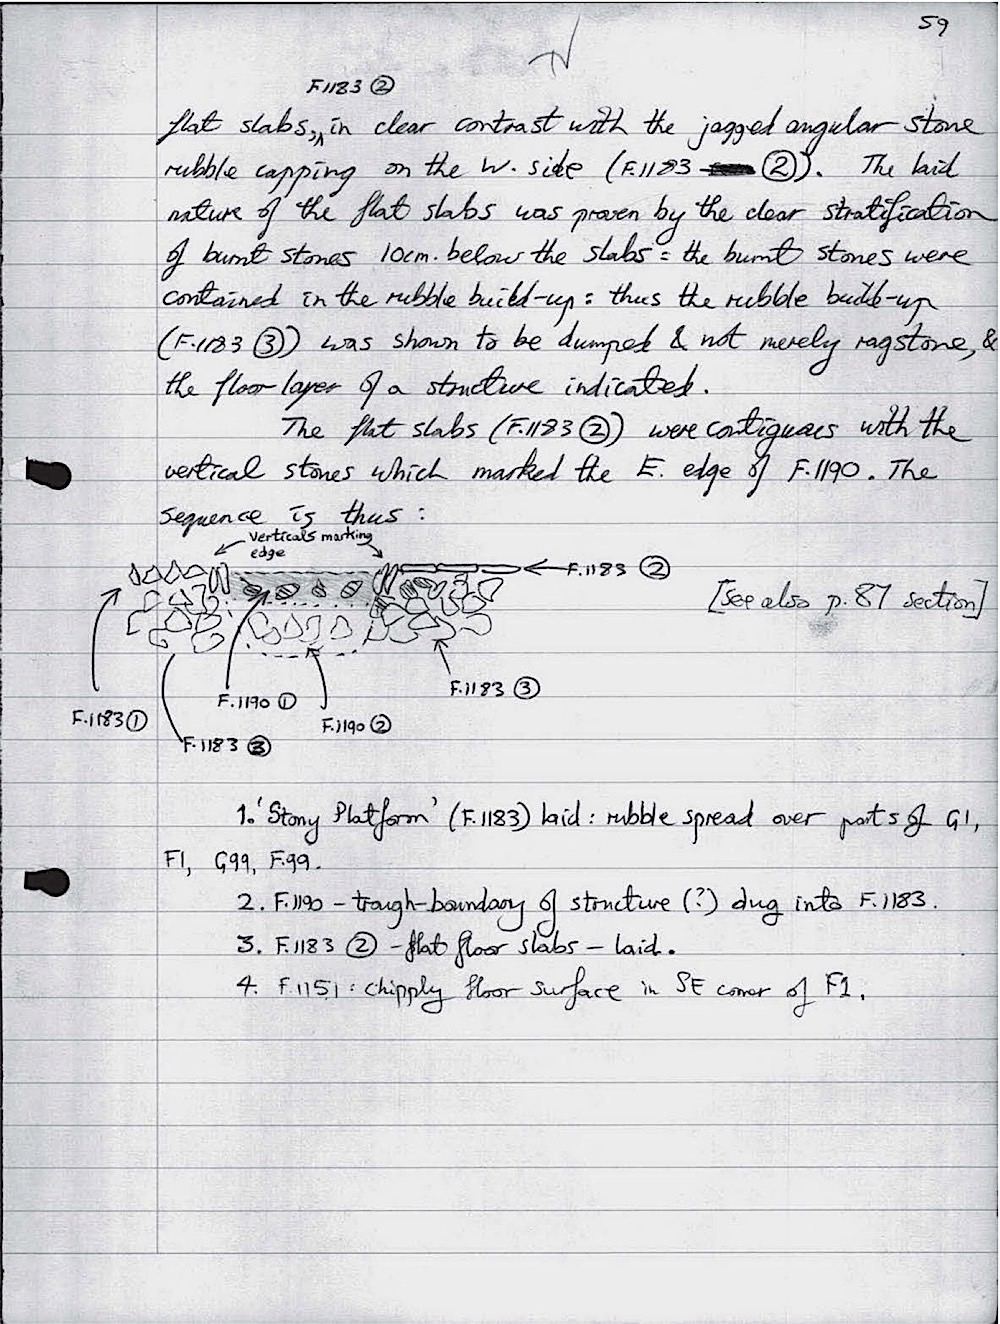 59
F.1183 ②
flat slabs, in clear contrast with the jagged angular stone
rubble capping on the W. side (F.1183 ②). The laid
nature of the flat slabs was proven by the clear stratification
of burnt stones 10cm. below the slabs = the burnt stones were
contained in the rubble build-up: thus the rubble build-up
(F.1183 ③) was shown to be dumped & not merely ragstone, &
the floor layer of a structure indicated.
The flat slabs (F.1183 ②) were contiguous with the
vertical stones which marked the E. edge of F.1190. The
sequence is thus:
Verticals marking
edge
F.1183 ②
[See also p. 87 section]
F.1183 ③
F.1190 ①
F.1183 ①
F.1190 ②
F.1183 ③
1. 'Stony Platform' (F.1183) laid: rubble spread over parts of G1,
F1, G99, F99.
2. F.1190 – trough-boundary of structure (?) dug into F.1183.
3. F.1183 ② – flat floor slabs – laid.
4. F.1151: chipply floor surface in SE corner of F1.